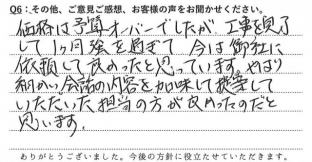 Q6：その他、ご意見ご感想、お客様の声をお聞かせください。
価格は予算オーバーでしたが 工事を完了
して1ヶ月強を過ぎて 今は御社に
依頼して良かったと思っています。やはり
細かい会話の内容を加味して提案して
いただいた担当の方が良かったのだと
思います。
ありがとうございました。今後の方針に役立たせていただきます。